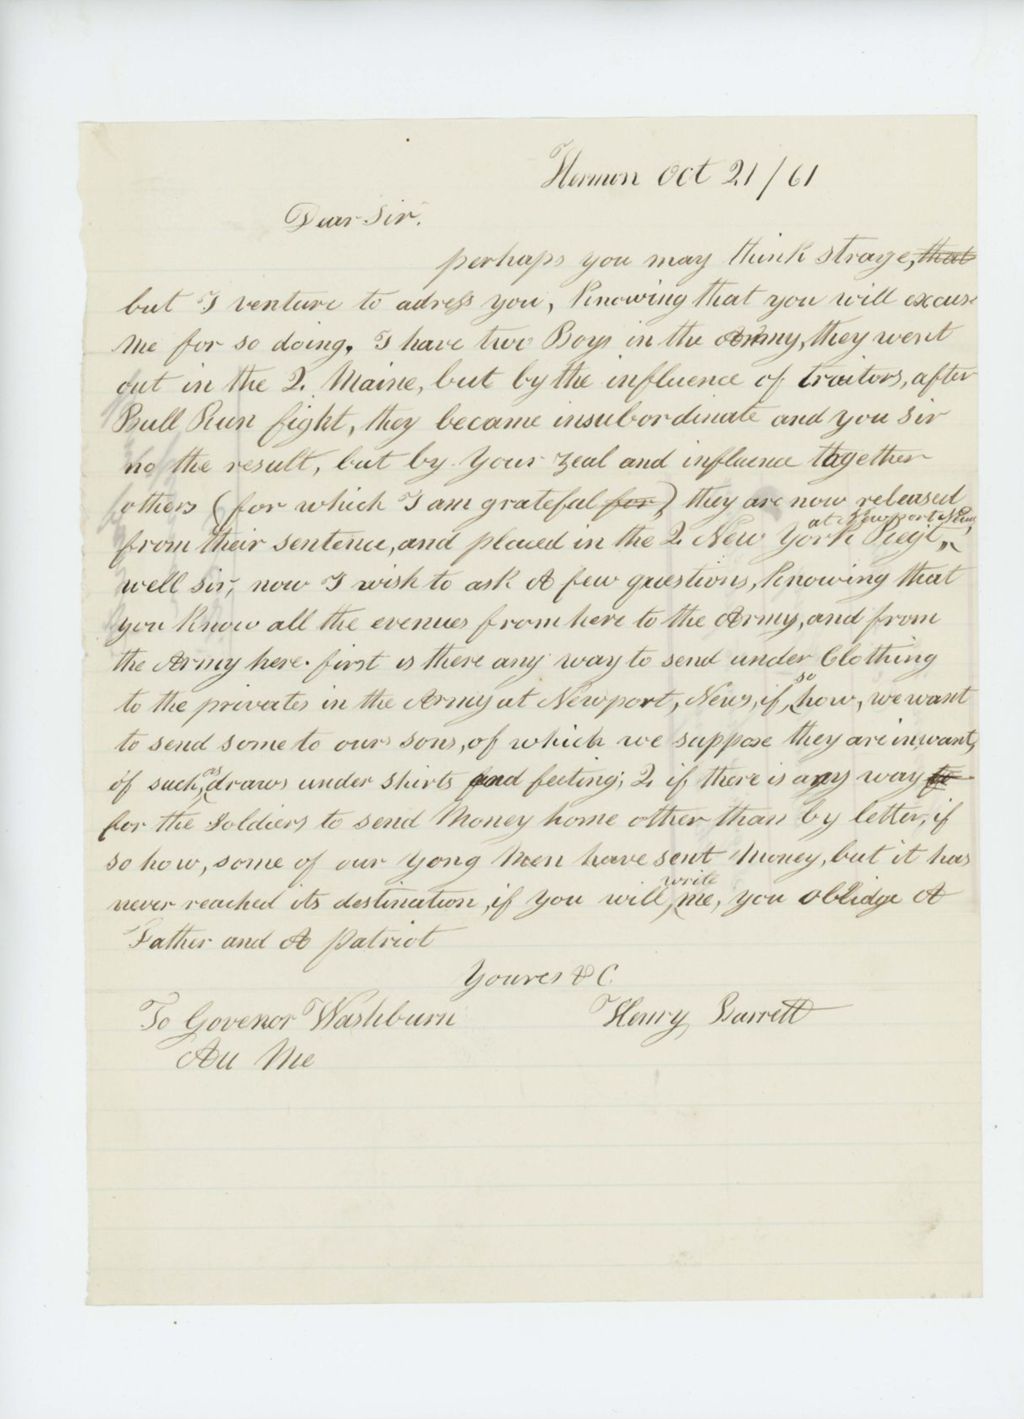 Hermon Oct 21/61
Dear Sir.
perhaps you may think strage, that
but I venture to adress you, knowing that you will excuse
me for so doing. I have two Boys in the Army, they went
out in the 2. Maine, but by the influence of traitors, after
Bull Run fight, they became insubordinate and you Sir
no the result, but by your zeal and influence together
others (for which I am grateful for) they are now released
at Newport News
from their sentence, and placed in the 2 New York Regt,,
well sir, now I wish to ask A few questions, knowing that
you know all the evenues from here to the Army, and from
the Army here. first is there any way to send under Clothing
to the privates in the Army at Newport, News, if, so how, we want
to send some to ours sons, of which we suppose they are in want,
of such, as draws under shirts and feeting; 2 if there is any way to
for the Soldiers to send Money home other than by letter, if
so how, some of our yong Men have sent Money, but it has
never reached its destination, if you will, write me, you oblidge A
Father and A Patriot
Youres &C.
To Govenor Washburn Henry Barrett
Au Me